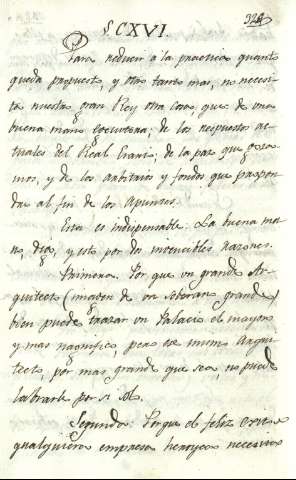 § CXVI.
328
Para reducir a la practica quanto
queda propuesto, y otro tanto mas, no necesi
ta nuestro gran Rey otra cosa, que de una
buena mano Executora; de los respuestos ac
tuales del Real Erario; de la paz que goza
mos, y de los arbitrios y fondos que propon
dre al fin de los Apuntes.
Esta es indispensable: La buena ma
no, digo, y esto por dos invencibles razones.
Primera. Por que un grande Ar
quitecto (imagen de un soberano grande)
bien puede trazar un Palacio el mayor
y mas magnifico, pero ese mismo Arqui
tecto, por mas grande que sea, no puede
labrarle por si solo.
Segunda: Porque el feliz exito de
qualquiera empresa heroyca necesita